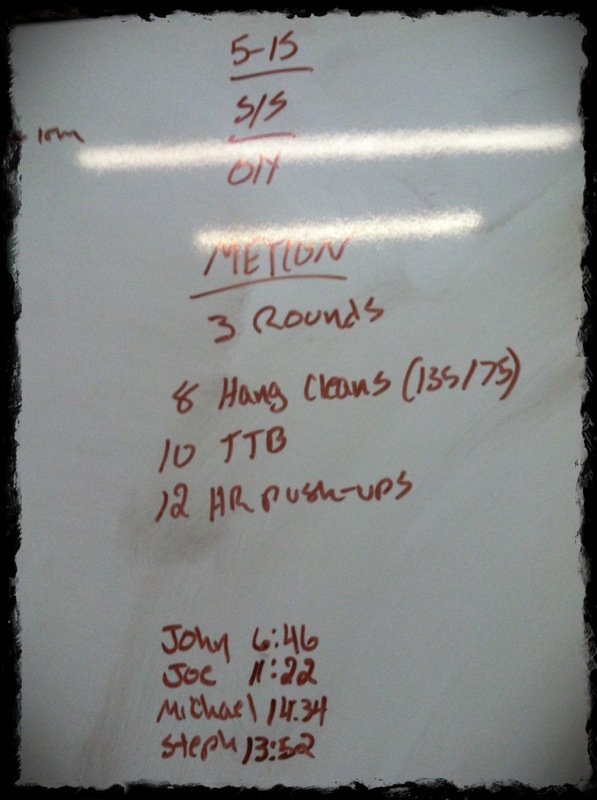 5-15
S/S
OLY
METCON
3 Rounds
8 Hang Cleans (135/75)
10 TTB
12 HR push-ups
John 6:46
Joe 11:22
Michael 14.34
Steph 13:52